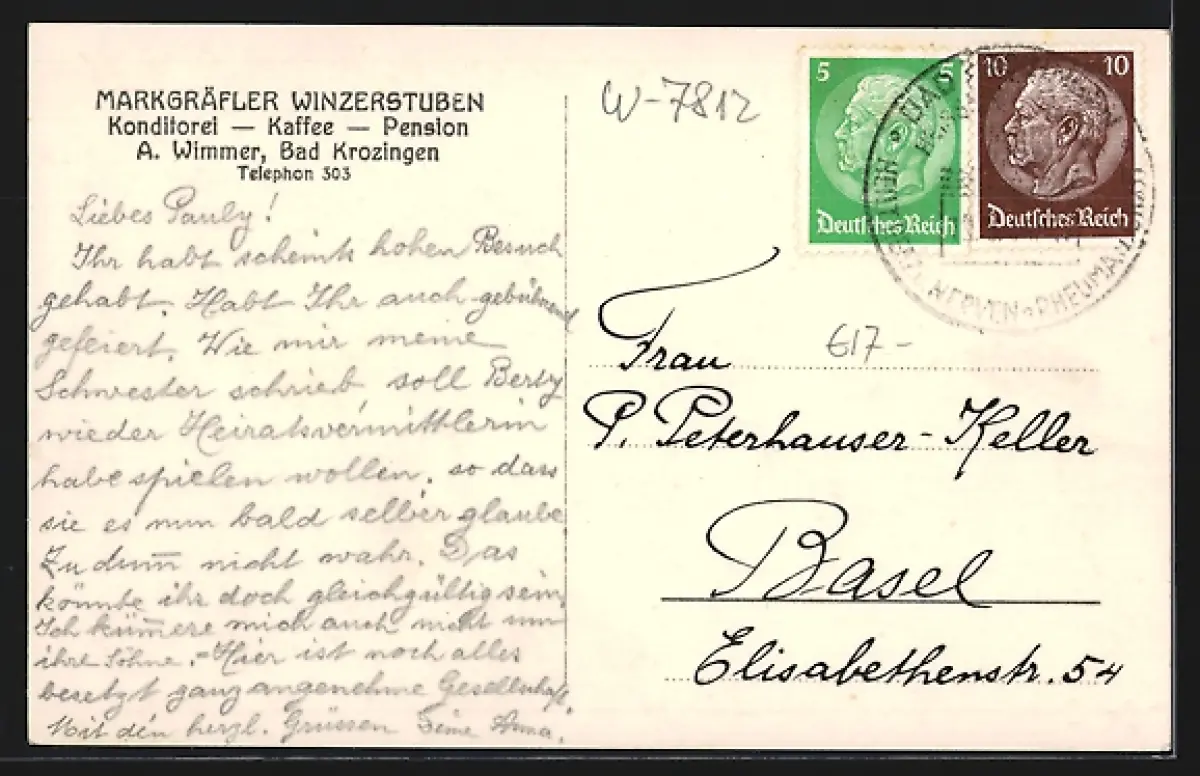 MARKGRÄFLER WINZERSTUBEN
Konditorei — Kaffee — Pension
A. Wimmer, Bad Krozingen
Telephon 303
Liebes Pauly!
Ihr habt scheints hohen Besuch
gehabt. Habt Ihr auch gebührend
gefeiert. Wie mir meine
Schwester schrieb, soll Berty
wieder Heiratsvermittlerin
habe spielen wollen, so dass
sie es nun bald selber glaube.
Zu dum̅ nicht wahr. Das
könnte ihr doch gleichgültig sein,
Ich küm̅ere mich auch nicht um
ihre Söhne. – Hier ist noch alles
besetzt ganz angenehme Gesellschaft.
Mit den herzl. Grüssen Deine Anna.
W-7812
5 5
Deutsches Reich
10 10
Deutsches Reich
BAD
HERZ
NERVEN RHEUMA
617-
Frau
P. Peterhauser-Keller
Basel
Elisabethenstr. 54